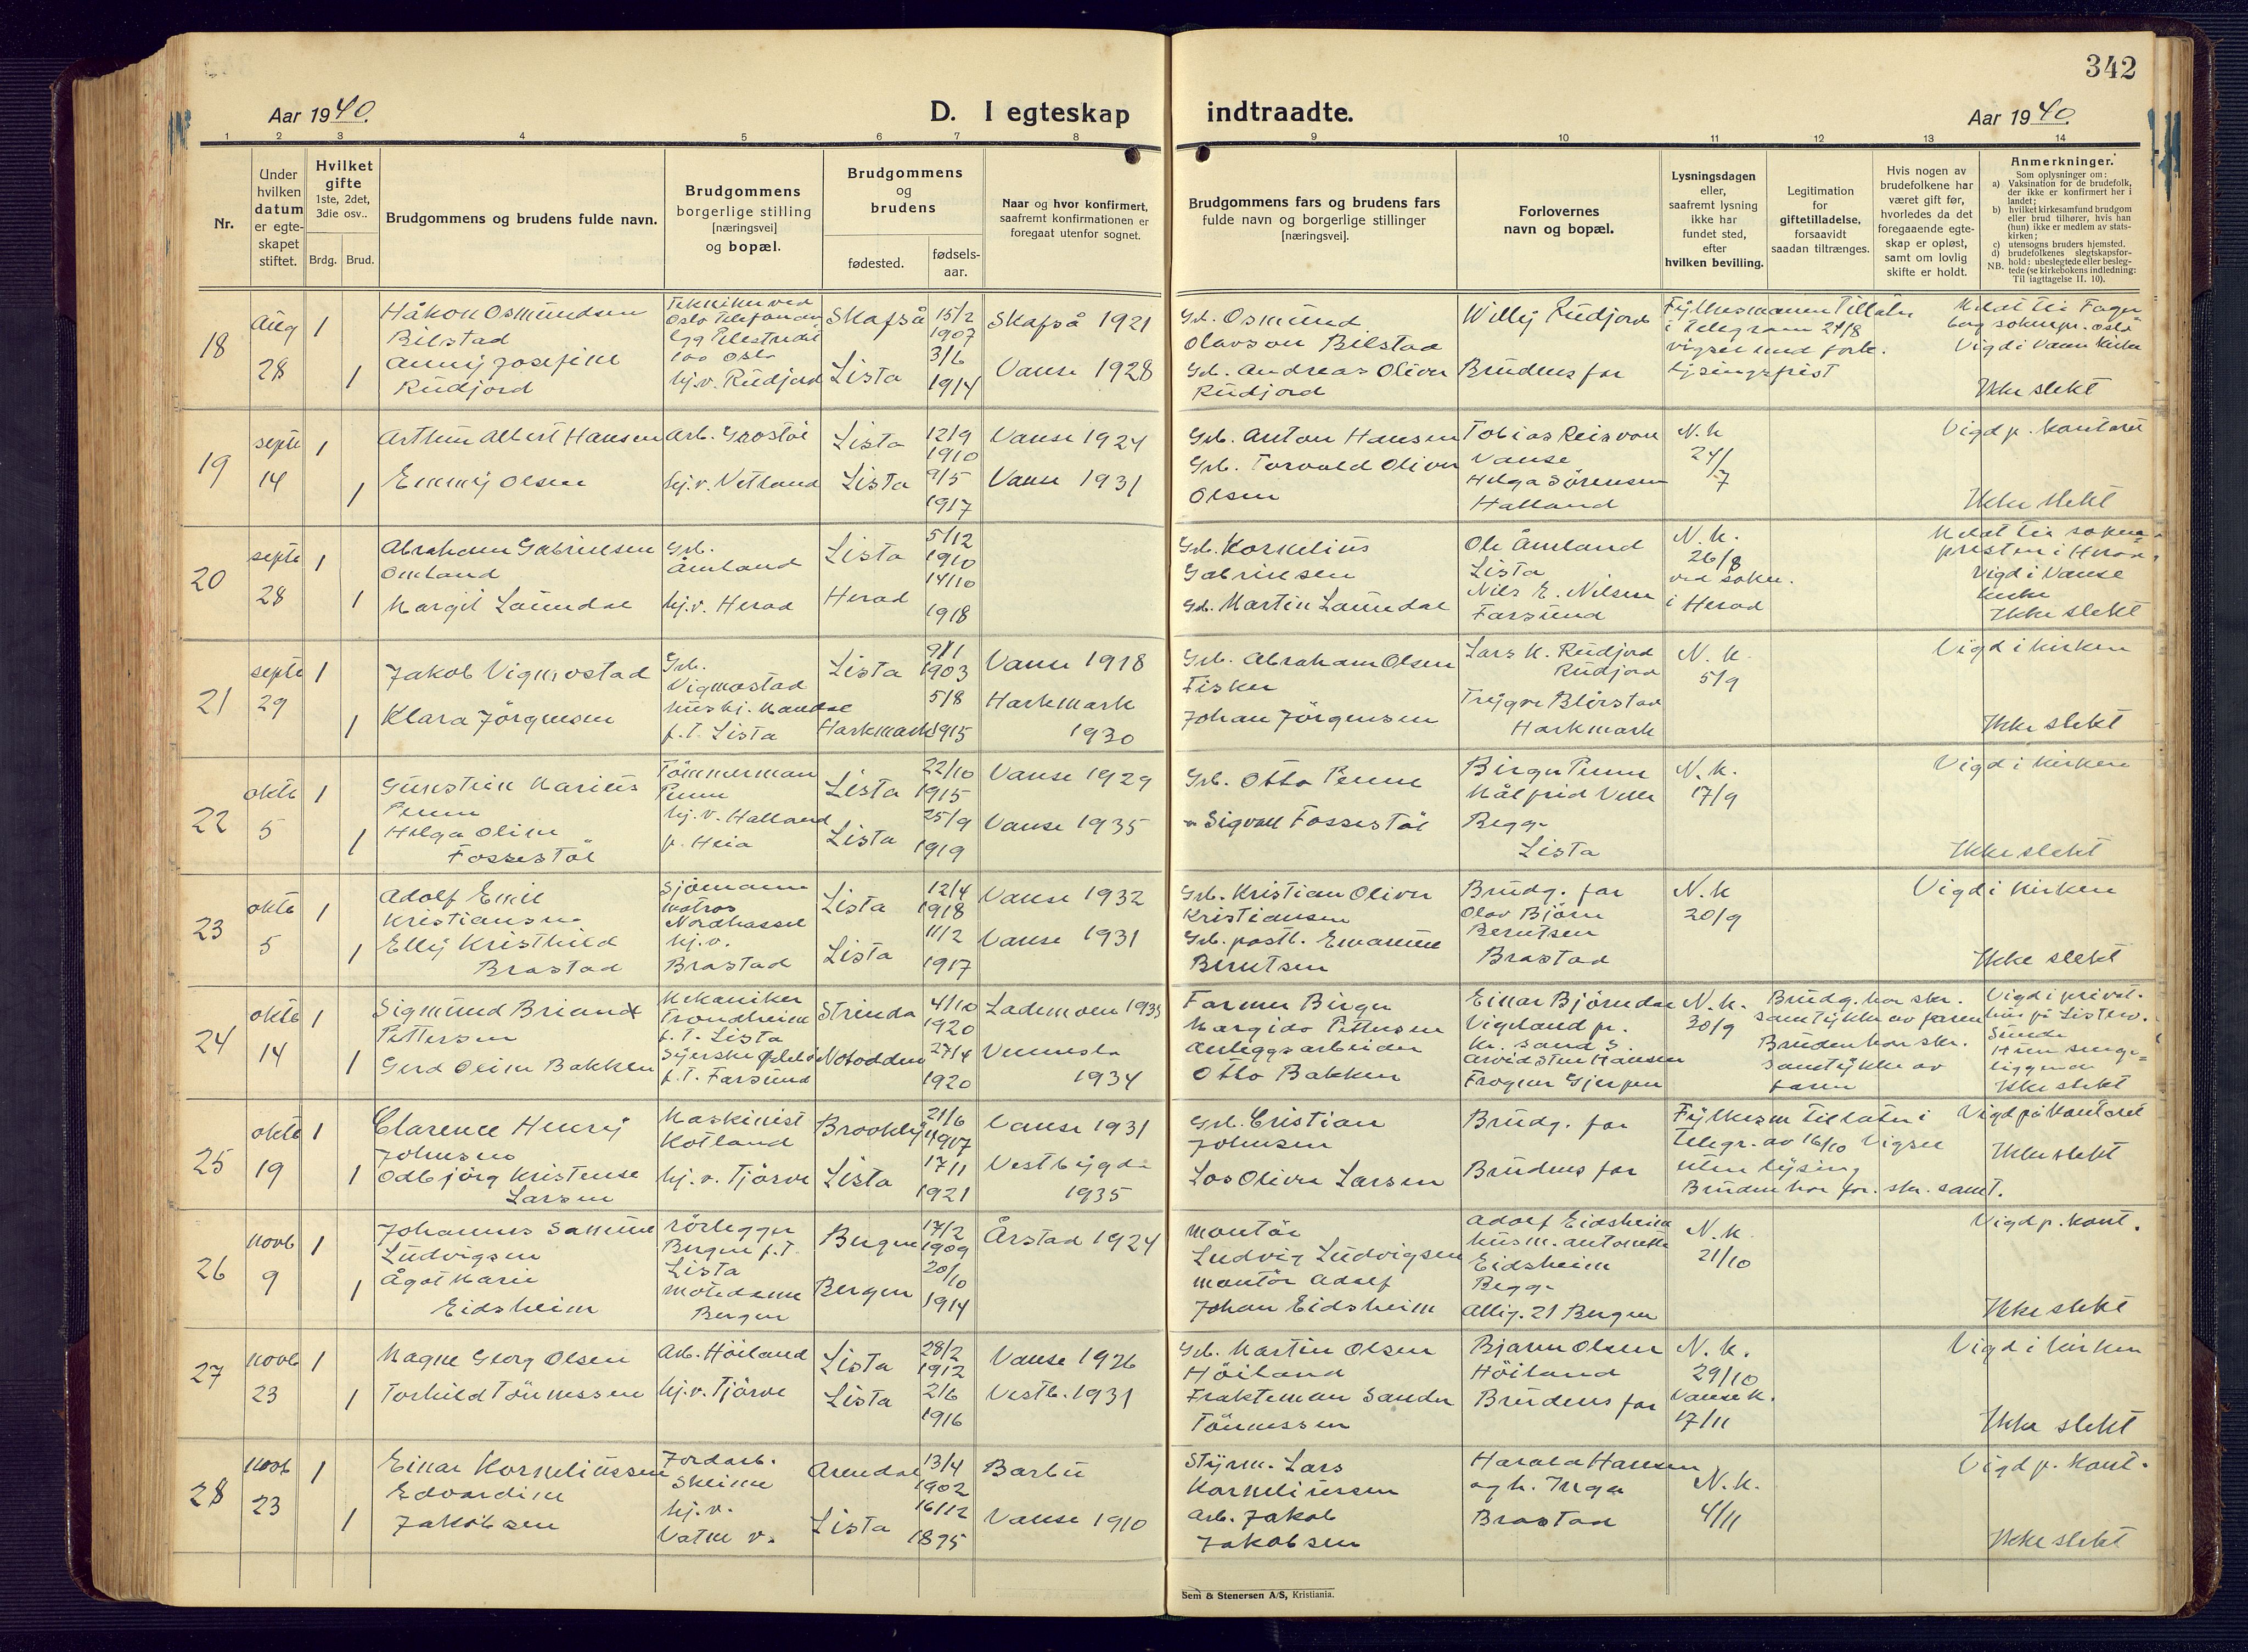 342
Aar 1940.
D. I egteskap indtraadte.
Aar 1940
1 2 3 4 5 6 7 8 9 10 11 12 13 14
Nr.
Under hvilken datum er egteskapet stiftet.
Hvilket gifte 1ste, 2det, 3die osv..
Brdg. Brud.
Brudgommens og brudens fulde navn.
Brudgommens borgerlige stilling [næringsvei] og bopæl.
Brudgommens og brudens
fødested.
fødsels-aar.
Naar og hvor konfirmert, saafremt konfirmationen er foregaat utenfor sognet.
Brudgommens fars og brudens fars fulde navn og borgerlige stillinger [næringsvei].
Forlovernes navn og bopæl.
Lysningsdagen eller, saafremt lysning ikke har fundet sted, efter hvilken bevilling.
Legitimation for giftetilladelse, forsaavidt saadan tiltrænges.
Hvis nogen av brudefolkene har været gift før, hvorledes da det foregaaende egteskap er opløst, samt om lovlig skifte er holdt.
Anmerkninger.
Som oplysninger om:
a) Vaksination for de brudefolk, der ikke er konfirmert her i landet;
b) hvilket kirkesamfund brudgom eller brud tilhører, hvis han (hun) ikke er medlem av statskirken;
c) utensogns bruders hjemsted.
d) brudefolkenes slegtskapsforhold: ubeslegtede eller beslegtede (se kirkebokens indledning:
NB. Til iagttagelse II. 10).
18 Aug 28 1 1
Håkon Osmundsen
Bilstad
Anny Josefine
Rudjord
Tekniker ved
Oslo Telefonanl
100 Oslo
hj.v. Rudjord
Skafså 15/2 1907 Skafså 1921
Lista 3/6 1914 Vanse 1928
Gb. Osmund
Olavson Bilstad
Gb. Andreas Oliver
Rudjord
Willy Rudjord
Brudens far
Fylkesmannen Tillater
i Telegram 24/8
vigsel med fork.
lysingsfrist
Meldt til Fager
borg soknepr. Oslo
Vigd i Vanse kirke
Ikke slekt
19 Septb 14 1 1
Arthur Albert Hansen
Emmy Olsen
Arb. Grostøl
hj.v. Vetland
Lista 12/9 1910 Vanse 1924
Lista 9/5 1917 Vanse 1931
Grb. Anton Hansen
Grb. Torvald Oliver
Olsen
Tobias Reisvoll
Vanse
Helga Sørensen
Halland
N.k
24/7
Vigd p. kontoret
Ikke slekt
20 septb 28 1 1
Abraham Gabrielsen
Omland
Margit Laundal
Grb.
Åmland
hj.v. Herad
Lista 5/12 1910
Herad 14/10 1918
Grb. Kornelius
Gabrielsen
Gb. Martin Laundal
Ole Åmland
Lista
Nils E. Nilsen
Farsund
N.k.
26/8
ved sokn.
i Herad
Meldt til sokne-
presten i Herad.
Vigd i Vanse
kirke
Ikke slekt
21 septb 29 1 1
Jakob Vigmostad
Klara Jørgensen
Grb.
Vigmostad
hushj. Mandal
f.t. Lista
Lista 9/1 1903 Vanse 1918
Harkmark 5/8 1915 Harkmark 1930
Grb. Abraham Olsen
Fisker
Johan Jørgensen
Lars K. Rudjord
Rudjord
Trygve Blørstad
Harkmark
N.k.
5/9
Vigd i kirken
Ikke slekt
22 oktb 5 1 1
Gunstein Marius
Penne
Helga Oline
Fossestøl
Tömmerman
Penne
hj.v. Halland
p. Heia
Lista 22/10 1915 Vanse 1929
Lista 25/9 1919 Vanse 1935
Grb. Otto Penne
" Sigvall Fossestøl
Birger Penne
Målfrid Velle
Begge
Lista
N.k.
17/9
Vigd i kirken
Ikke slekt
23 oktb 5 1 1
Adolf Emil
Kristiansen
Elly Kristhild
Brastad
Sjömann
matros
Nordhassel
hj.v.
Brastad
Lista 12/4 1918 Vanse 1932
Lista 11/2 1917 Vanse 1931
Grb. Kristian Oliver
Kristiansen
Grb. postb. Emanuel
Berntsen
Brudg. far
Olav Bjørn
Berntsen
Brastad
N.k
20/9
Vigd i kirken
Ikke slekt
24 oktb 14 1 1
Sigmund Briand
Pettersen
Gerd Oline Bakken
Mekaniker
Trondheim
f.t. Lista
f.t. Farsund
Strinda 4/10 1920 Lademoen 1935
Notodden 27/4 1920 Vennesla 1934
Farmer Birger
Margido Pettersen
Anleggsarbeider
Otto Bakken
Einar Bjørndal
Vigeland pr.
Kr. sand S.
Arvid Sten Hansen
Frogner Gjerpen
N.k.
30/9
Brudg. har skr.
samtykke av faren
Bruden har skr.
samtykke av
faren
Vigd i privat-
hus på Listerv.
Sunde
Hun senge=
liggende
Ikke slekt
25 oktb 19 1 1
Clarence Henry
Johnsen
Odbjörg Kristense
Larsen
Maskinist
Kotland
hj.v. Tjörve
Brooklyn 21/6 1907 Vanse 1931
Lista 17/1 1921 Vestbygda 1935
Grb. Cristian
Johnsen
Los Oliver Larsen
Brudg. far
Brudens far
Fylkesm tillater i
telegr. av 16/10 Vigsel
uten lysing
Bruden har for. skr. samt.
Vigd på kontoret
Ikke slekt
26 Novb 9 1 1
Johannes Samuel
Ludvigsen
Ågot Marie
Eidsheim
rörlegger
Bergen f.t.
Lista
motedame
Bergen
Bergen 17/2 1909 Årstad 1924
Bergen 20/10 1914
montör
Ludvig Ludvigsen
montör Adolf
Johan Eidsheim
Adolf Eidsheim
husm. Antonette
Eidsheim
Begge
Allig. 21 Bergen
N.k.
21/10
Vigd p. kont.
Ikke slekt
27 Novb 23 1 1
Magne Georg Olsen
Torhild Tönnessen
Arb. Höiland
hj.v. Tjörve
Lista 28/2 1912 Vanse 1926
Lista 2/6 1916 Vestb. 1931
Grb. Martin Olsen
Höiland
Frakteman Sander
Tönnessen
Bjarne Olsen
Höiland
Brudens far
N.k.
29/10
Vanse k.
17/11
Vigd i kirken
Ikke slekt
28 Novb 23 1 1
Einar Korneliussen
Edvardine
Jakobsen
Jordarb.
Skeime
hj.v.
Vatne v.
Arendal 13/4 1902 Barbu
Lista 16/12 1895 Vanse 1910
Styrm. Lars
Korneliussen
Arb. Jakob
Jakobsen
Harald Hansen
og h. Inga
Brastad
N.k.
4/11
Vigd p. kont.
Ikke slekt
Sem & Stenersen A/S, Kristiania.